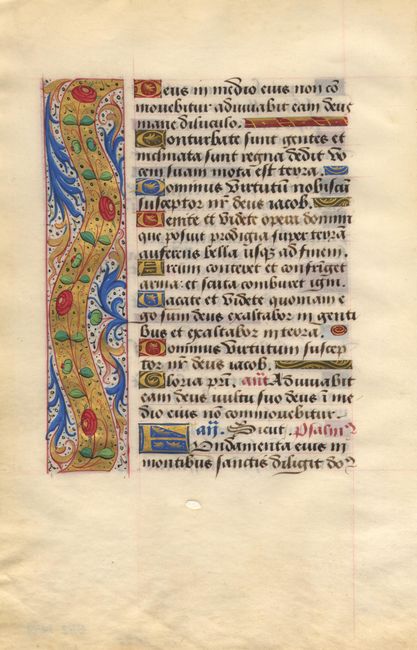 Deus in medio eius non cō
movebitur adiuvabit eam deus
mane diluculo.
Conturbate sunt gentes et
inclinata sunt regna dedit vo
cem suam mota est terra.
Dominus virtutum nobiscū
susceptor nr̄ deus iacob.
Venite et videte opera domini
que posuit prodigia super terrā
auferens bella usqꝫ ad finem.
Arcum conteret et confriget
arma et scuta comburet igni.
Vacate et videte quoniam e
go sum deus exaltabor in genti
bus et exaltabor in terra.
Dominus virtutum suscep
tor nr̄ deus iacob.
Gloria pr̄i. añ Adiuvabit
eam deus vultu suo deus ī me
dio eius nō commovebitur.
añ. Sicut. Psalm⁹
Fundamenta eius in
montibus sanctis diligit do⁹